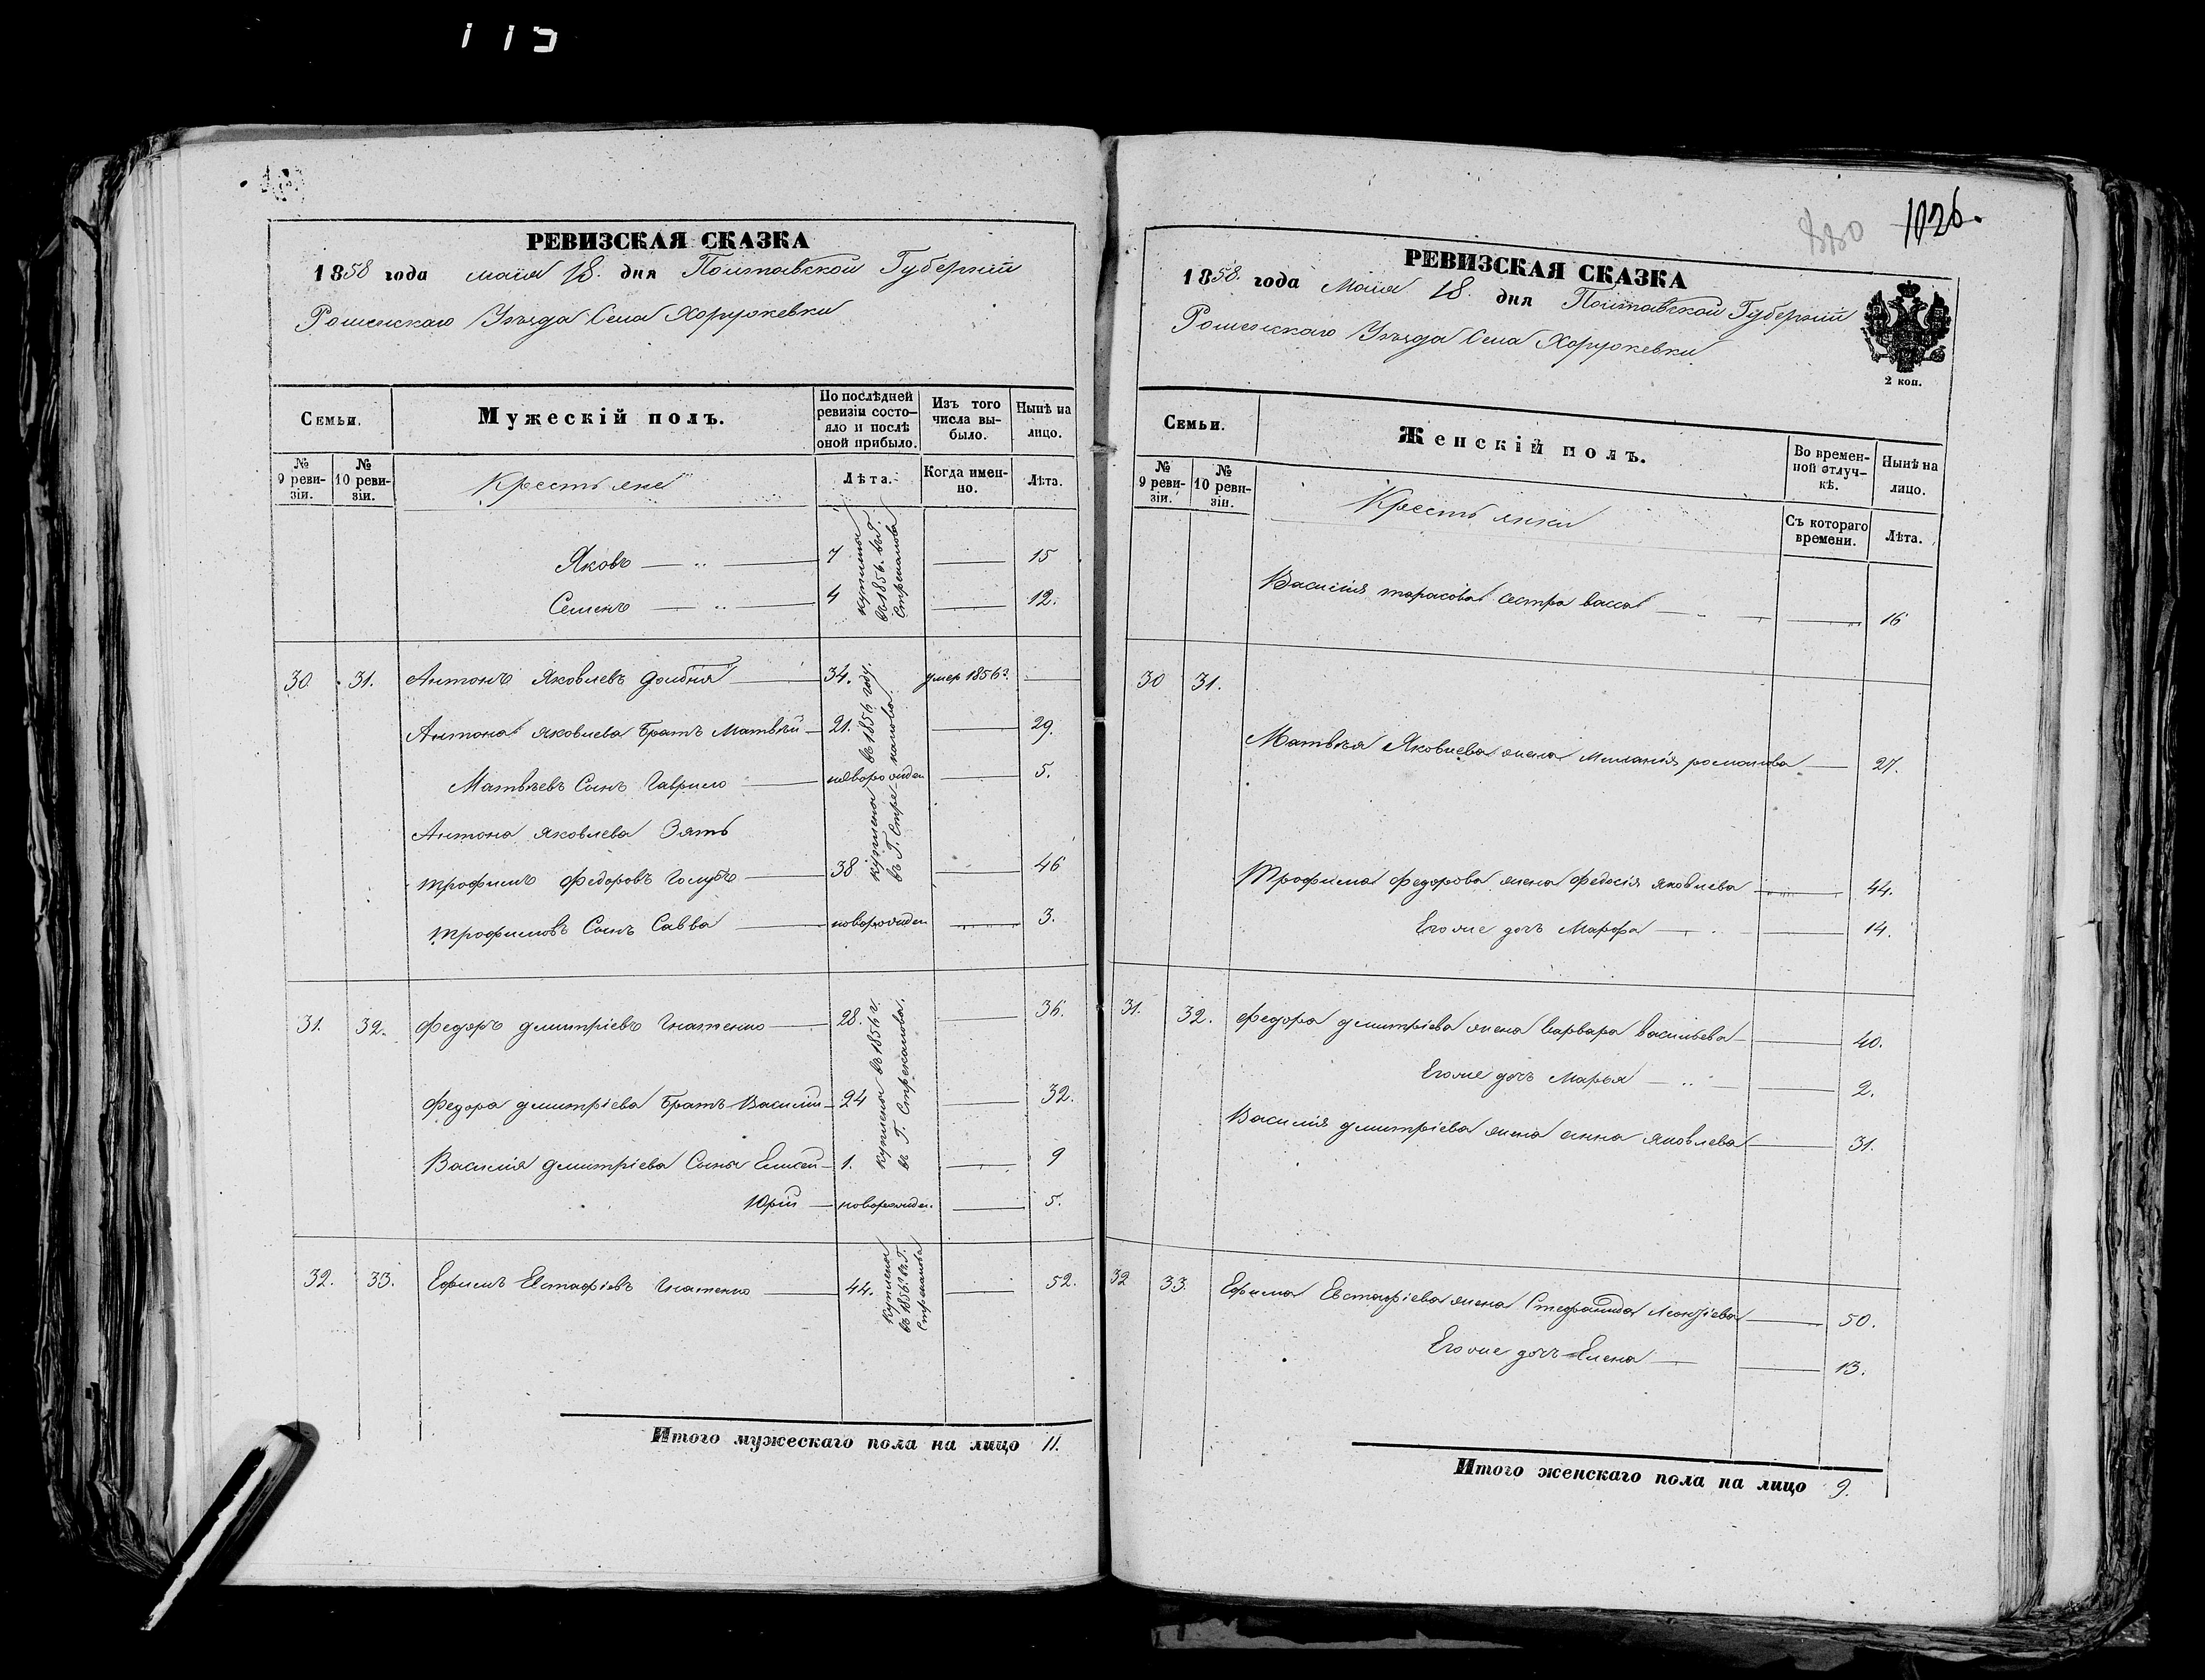 1026.
РЕВИЗСКАЯ СКАЗКА
1858 года маія 18. дня Полтавской Губерніи
Роменскаго Уѣзда Села Хоружевки
Семьи.
Мужескій полъ.
По послѣдней ревизіи состояло и послѣ оной прибыло.
Изъ того числа выбыло.
Нынѣ на лицо.
№ 9 ревизіи.
№ 10 ревизіи.
Крестьяне
Лѣта.
Когда именно.
Лѣта.
Яковъ — „ — 7 — 15
Семенъ — „ — 4 — 12.
куплены
въ 1856. въ Г.
30 31. Антонъ Яковлевъ долбня — 34. умер 1856 г. —
Антона яковлева Братъ Матвѣй — 21. — 29.
Матвѣевъ Сынъ Гаврило — новорожден — 5.
Антона яковлева Зять
трофимъ федоровъ голубъ — 38 — 46
трофимовъ Сынъ Савва — новорожден — 3.
куплены въ 1856 году.
31. 32. федоръ дмитріевъ Игнатенко — 28. — 36.
федора дмитріева Братъ Василій — 24 — 32.
Василія дмитріева Сыны Елисей — 1. — 9
Юрій — новорожден. — 5.
куплены въ 1856 г.
32. 33. Ефимъ Евстафіевъ Игнатенко — 44. — 52.
куплены
въ 1856 г. въ Г.
Итого мужескаго пола на лицо 11.
РЕВИЗСКАЯ СКАЗКА
1858. года Маія 18. дня Полтавской Губерніи
Роменскаго Уѣзда Села Хоружевки
2 коп.
Семьи.
Женскій полъ.
Во временной отлучкѣ.
Нынѣ на лицо.
№ 9 ревизіи.
№ 10 ревизіи.
Крестьянки
Съ котораго времени.
Лѣта.
Василія тарасова сестра васса — — 16
30 31.
Матвѣя Яковлева жена Меланія романова — 27.
Трофима федорова жена федосія яковлева — 44.
Его же дочь Марфа — — 14.
31. 32. федора дмитріева жена варвара васильева — 40.
Его же дочь Марья — „ — 2.
Василія дмитріева жена анна яковлева — 31.
32 33. Ефима Евстафіева жена Стефанида Леонтіева — 50.
Его же дочь Елена — — 13.
Итого женскаго пола на лицо 9.